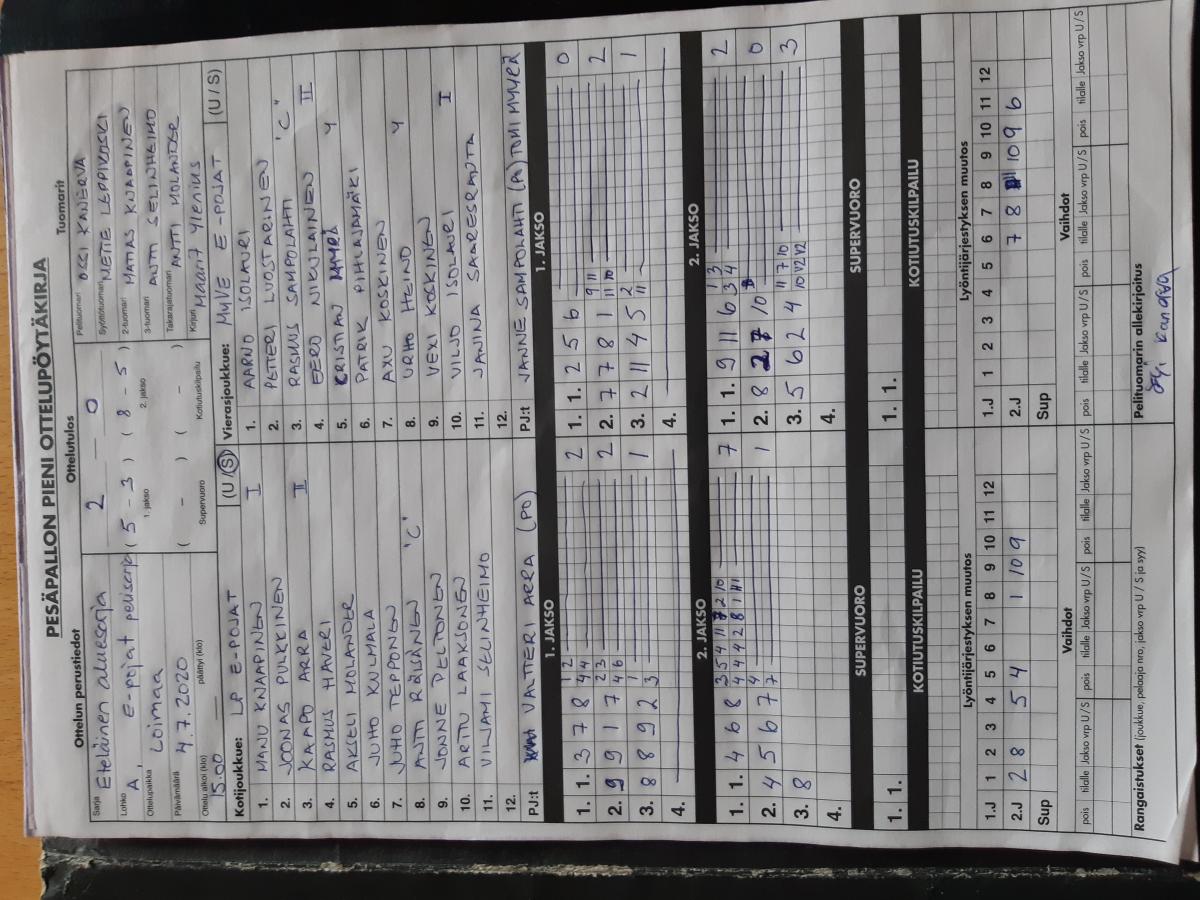 PESÄPALLON PIENI OTTELUPÖYTÄKIRJA
Ottelun perustiedot
Sarja Eteläinen aluesarja
Lohko A, E-pojat pelisarja
Ottelupaikka Loimaa
Päivämäärä 4.7.2020
Ottelu alkoi (klo) 15.00 päättyi (klo)
Ottelutulos
2 — 0
(5 - 3) (8 - 5)
1. jakso 2. jakso
( - ) ( - )
Supervuoro Kotiutuskilpailu
Tuomarit
Pelituomari OSSI KANERVA
Syöttötuomari NETTE LEPPIKOSKI
2-tuomari MATIAS KNAAPINEN
3-tuomari ANTTI SELINHEIMO
Takarajatuomari ANTTI MOLANDER
Kirjuri Maarit Ylenius
Kotijoukkue: LP E-POJAT (U / S)
1. MANU KNAAPINEN I
2. JOONAS PULKKINEN
3. KAAPO ARRA II
4. RASMUS HAVERI
5. AKSELI MOLANDER
6. JUHO KULMALA
7. JUHO TEPPONEN
8. ANTTI RÖLSÄNEN 'C'
9. JONNE PELTONEN
10. ARTTU LAAKSONEN
11. VILJAMI SELINHEIMO
12.
PJ:t VALTTERI ARRA (PO)
Vierasjoukkue: MYVE E-POJAT (U / S)
1. AARNO ISOLAURI
2. PETTERI LUOSTARINEN 'C'
3. RASMUS SAMPOLAHTI
4. EERO NIKULAINEN II
5. KRISTIAN MYYRÄ Y
6. PATRIK PIHLAJAMÄKI
7. AXU KOSKINEN
8. URHO HEINO Y
9. VEXI KOSKINEN
10. VILJO ISOLAURI I
11. JANINA SAARESRANTA
12.
PJ:t JANNE SAMPOLAHTI (PO) TOMI MYYRÄ
1. JAKSO
1. 1. 3 7 8 4 4 2
1 2
2. 9 9 1 7 4 6 2
2 3
3. 8 8 9 2 3 1
1
4.
1. JAKSO
1. 1. 2 5 6 0
2. 7 7 8 1 11 10 2
9 11
3. 2 11 4 5 11 1
2
4.
2. JAKSO
1. 1. 4 6 8 4 4 4 2 8 1 7
3 5 4 11 2 10
2. 4 5 6 7 7 1
4
3. 8
4.
2. JAKSO
1. 1. 9 11 6 3 4 2
1 3
2. 8 7 10 0
3. 5 6 2 4 10 12 12 3
11 7 10
4.
SUPERVUORO
1. 1.
KOTIUTUSKILPAILU
SUPERVUORO
1. 1.
KOTIUTUSKILPAILU
Lyöntijärjestyksen muutos
1 2 3 4 5 6 7 8 9 10 11 12
1.J
2.J 2 8 5 4 1 10 9
Sup
Lyöntijärjestyksen muutos
1 2 3 4 5 6 7 8 9 10 11 12
1.J
2.J 7 8 10 9 6
Sup
Vaihdot
pois tilalle Jakso vrp U / S pois tilalle Jakso vrp U / S pois tilalle Jakso vrp U / S
Vaihdot
pois tilalle Jakso vrp U / S pois tilalle Jakso vrp U / S pois tilalle Jakso vrp U / S
Rangaistukset (joukkue, pelaaja nro, jakso vrp U / S ja syy)
Pelituomarin allekirjoitus
Ossi Kanerva